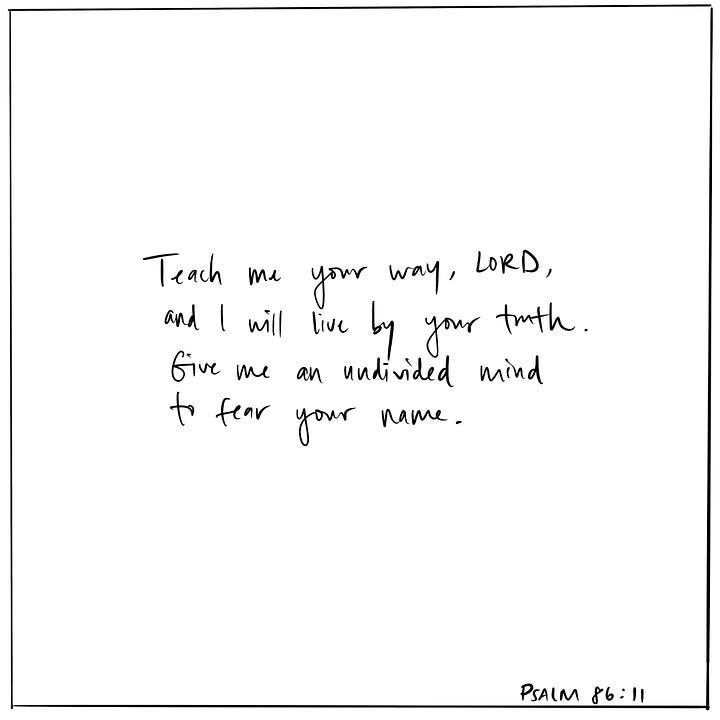 Teach me your way, LORD,
and I will live by your truth.
Give me an undivided mind
to fear your name.
PSALM 86:11